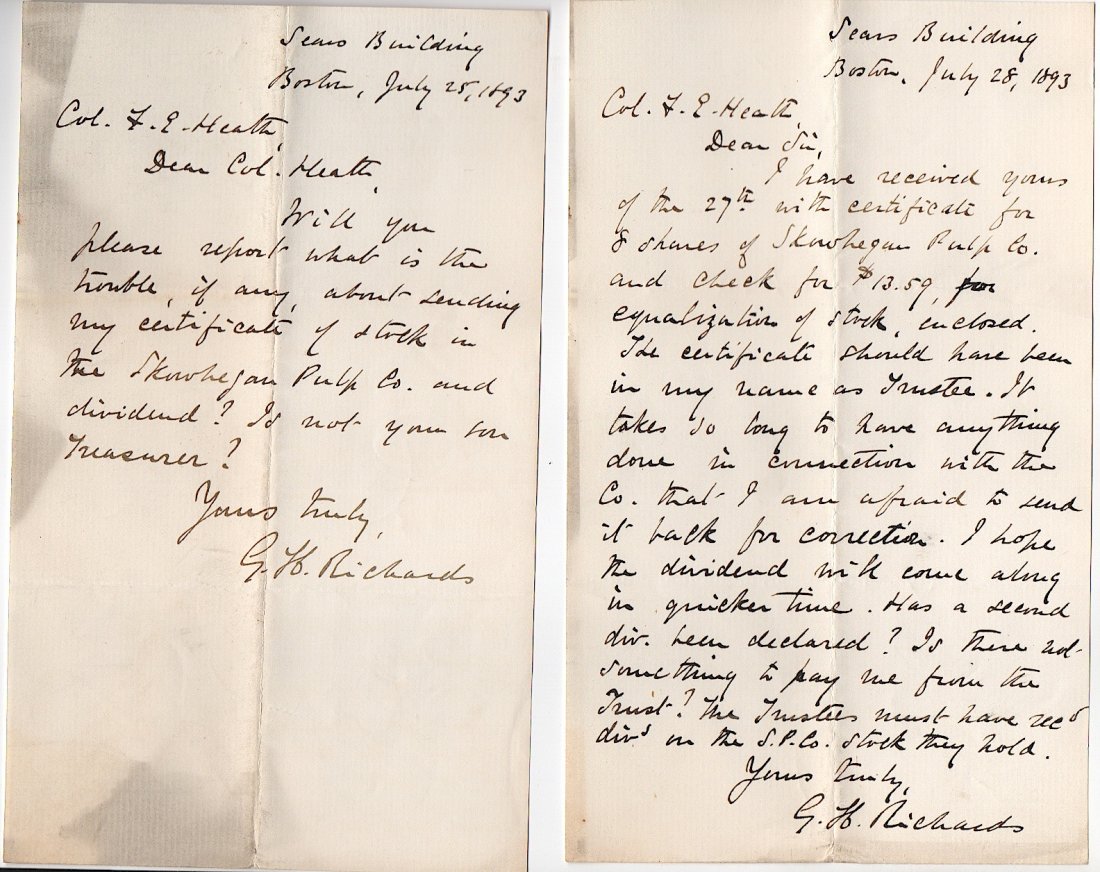 Sears Building
Boston, July 25, 1893
Col. F. E. Heath,
Dear Col. Heath,
Will you
please report what is the
trouble, if any, about sending
my certificate of stock in
the Skowhegan Pulp Co. and
dividend? Is not your son
Treasurer?
Yours truly,
G. H. Richards
Sears Building
Boston, July 28, 1893
Col. F. E. Heath,
Dear Sir,
I have received yours
of the 27th with certificate for
8 shares of Skowhegan Pulp Co.
and check for $13.59, for
equalization of stock, enclosed.
The certificate should have been
in my name as Trustee. It
takes so long to have anything
done in connection with the
Co. that I am afraid to send
it back for correction. I hope
the dividend will come along
in quicker time. Has a second
div. been declared? Is there not
something to pay me from the
Trust? The Trustees must have recd
divds on the S.P.Co. stock they hold.
Yours truly,
G. H. Richards